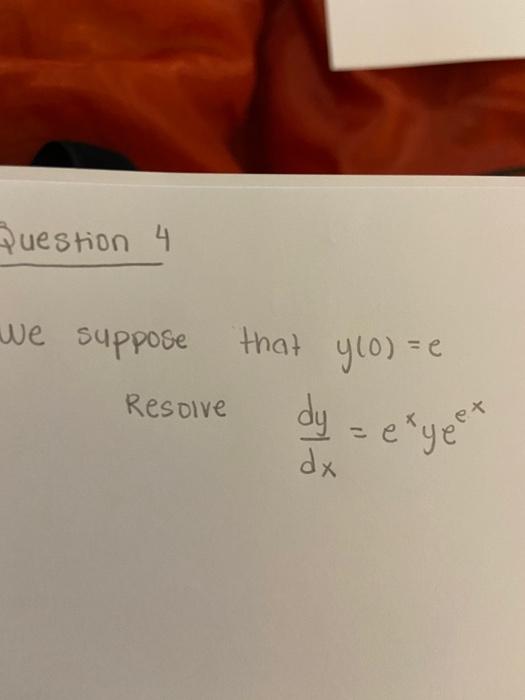 Question 4
We suppose that y(0) = e
Resolve dy/dx = e^x y e^{e^x}